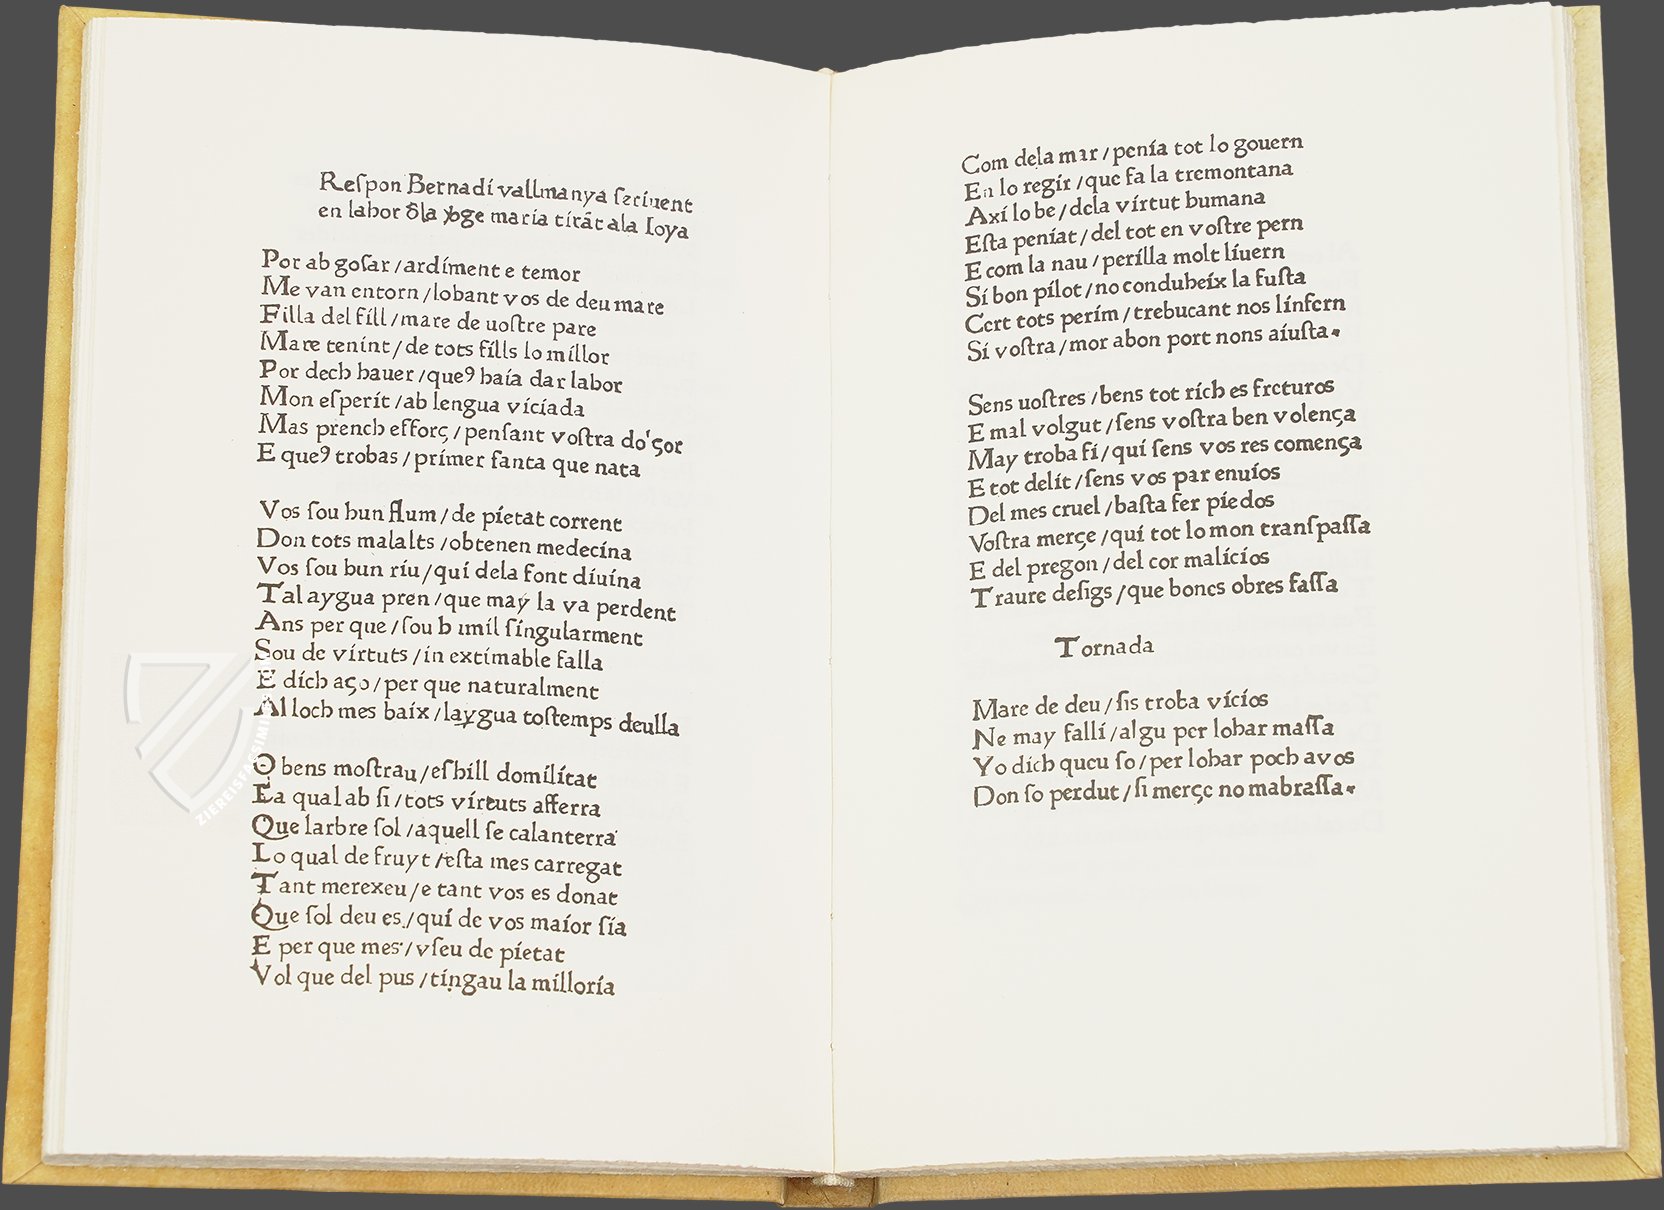 Reſpon Bernadi vallmanya ſeciuent
en labor d̄la ẏbge maria tirāt ala Ioya
Por ab goſar / ardiment e temor
Me van entorn / lobant vos de deu mare
Filla del fill / mare de uoſtre pare
Mare tenint / de tots fills lo millor
Por dech hauer / queꝰ haia dar labor
Mon eſperit / ab lengua viciada
Mas prench efforç / penſant voſtra do'çor
E queꝰ trobas / primer ſanta que nata
Vos ſou hun flum / de pietat corrent
Don tots malalts / obtenen medecina
Vos ſou hun riu / qui dela font diuina
Tal aygua pren / que may la va perdent
Ans per que / ſou h imil ſingularment
Sou de virtuts / in extimable ſalla
E dich aço / per que naturalment
Al loch mes baix / laygua toſtemps deuſla
O bens moſtrau / eſhill domilitat
La qual ab ſi / tots virtuts afferra
Que larbre ſol / aquell ſe calanterra
Lo qual de fruyt / eſta mes carregat
Tant merexeu / e tant vos es donat
Que ſol deu es / qui de vos maior ſia
E per que mes / vſeu de pietat
Vol que del pus / tingau la milloria
Com dela mar / penia tot lo gouern
En lo regir / que fa la tremontana
Axi lo be / dela virtut humana
Eſta peniat / del tot en voſtre pern
E com la nau / perilla molt liuern
Si bon pilot / no conduheix la fuſta
Cert tots perim / trebucant nos linfern
Si voſtra / mor abon port nons aiuſta
Sens uoſtres / bens tot rich es freturos
E mal volgut / ſens voſtra ben volença
May troba fi / qui ſens vos res comença
E tot delit / ſens vos par enuios
Del mes cruel / baſta fer piedos
Voſtra merçe / qui tot lo mon tranſpaſſa
E del pregon / del cor malicios
Traure deſigs / que bones obres faſſa
Tornada
Mare de deu / ſis troba vicios
Ne may falli / algu per lohar maſſa
Yo dich queu ſo / per lohar poch avos
Don ſo perdut / ſi merçe no mabraſſa
ZIEREIS FACSIMILES